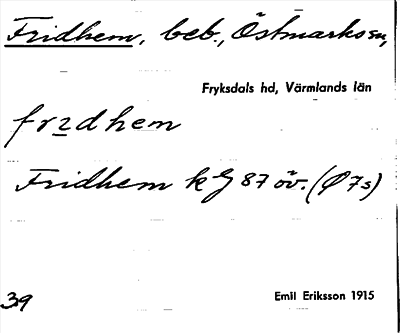 Fridhem, beb., Östmarks sn,
Fryksdals hd, Värmlands län
fridhem
Fridhem k 87 öv. (Ø 7s)
39
Emil Eriksson 1915